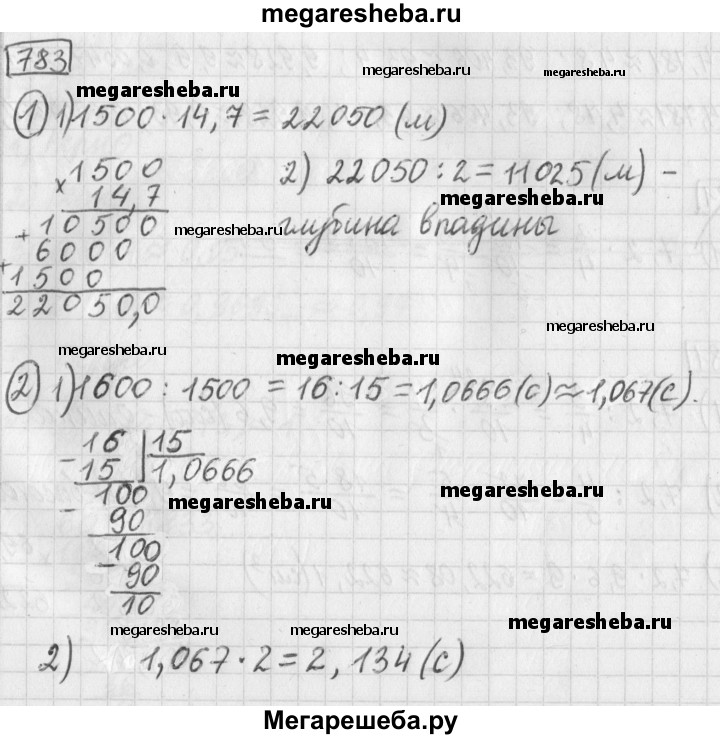 megaresheba.ru
783
megaresheba.ru
megaresheba.ru
megaresheba.ru
1) 1) 1500 · 14,7 = 22050 (м)
× 1500
14,7
+ 10500
+ 6000
1500
22050,0
2) 22050 : 2 = 11025 (м) –
megaresheba.ru
megaresheba.ru
глубина впадины
megaresheba.ru
megaresheba.ru
megaresheba.ru
2) 1) 1600 : 1500 = 16 : 15 = 1,0666 (с) ≈ 1,067 (с).
– 16 | 15
15 | 1,0666
100
– 90
100
– 90
10
megaresheba.ru
megaresheba.ru
megaresheba.ru
megaresheba.ru
megaresheba.ru
2) 1,067 · 2 = 2,134 (с)
Мегарешеба.ру